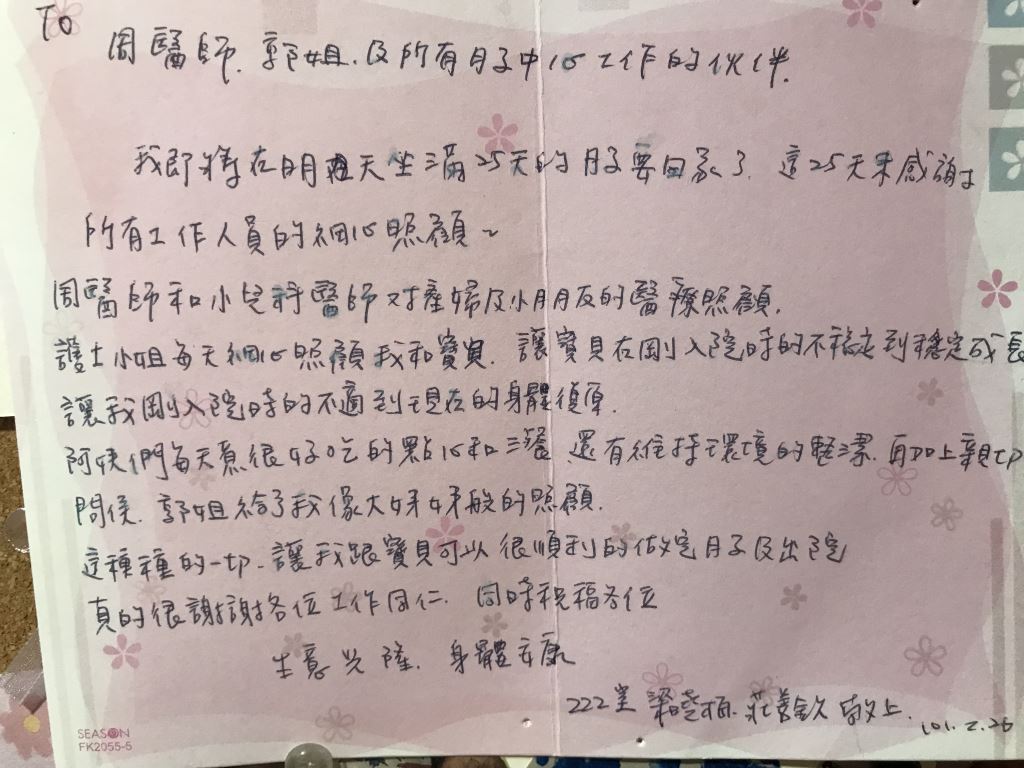 TO
周醫師. 郭姐. 及所有月子中心工作的伙伴.
我即將在明天坐滿25天的月子要回家了. 這25天來感謝
所有工作人員的細心照顧~
周醫師和小兒科醫師对產婦及小朋友的醫療照顧.
護士小姐每天細心照顧我和寶貝. 讓寶貝在剛入院時的不穩定到穩定成長
讓我剛入院時的不適到現在的身體復原.
阿姨們每天煮很好吃的點心和三餐. 還有維持環境的整潔. 再加上親切
問侯. 郭姐給了我像大姊姊般的照顧.
這種種的一切. 讓我跟寶貝可以很順利的做完月子及出院
真的很謝謝各位工作同仁. 同時祝福各位
生意兴隆. 身體安康
222室 梁 莊 敬上.
101.2.26
SEASON
FK2055-5